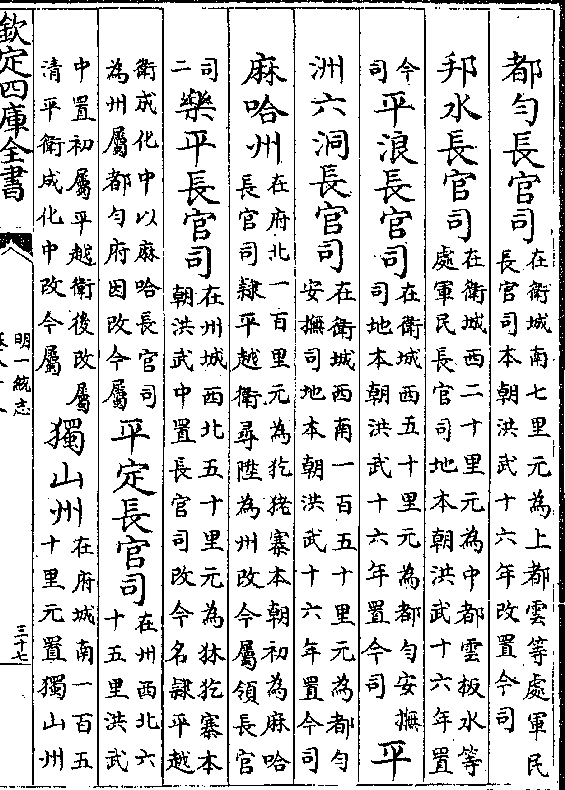 都勻長官司在衛城南七里元為上都雲等處軍民
長官司本朝洪武十六年改置今司
邦水長官司在衛城西二十里元為中都雲板水等
處軍民長官司地本朝洪武十六年置
今司平浪長官司在衛城西五十里元為都勻安撫
司地本朝洪武十六年置今司平
洲六洞長官司在衛城西南一百五十里元為都勻
安撫司地本朝洪武十六年置今司
麻哈州在府北一百里元為犵狫寨本朝初為麻哈
長官司隸平越衛尋陞為州改今屬領長官
司二樂平長官司在州城西北五十里元為狇犵寨本
朝洪武中置長官司改今名隸平越
衛成化中以麻哈長官司
為州屬都勻府因改今屬平定長官司在州西北六
十五里洪武
中置初屬平越衛後改屬
清平衛成化中改今屬獨山州在府城南一百五
十里元置獨山州
欽定四庫全書
明一統志
三十七